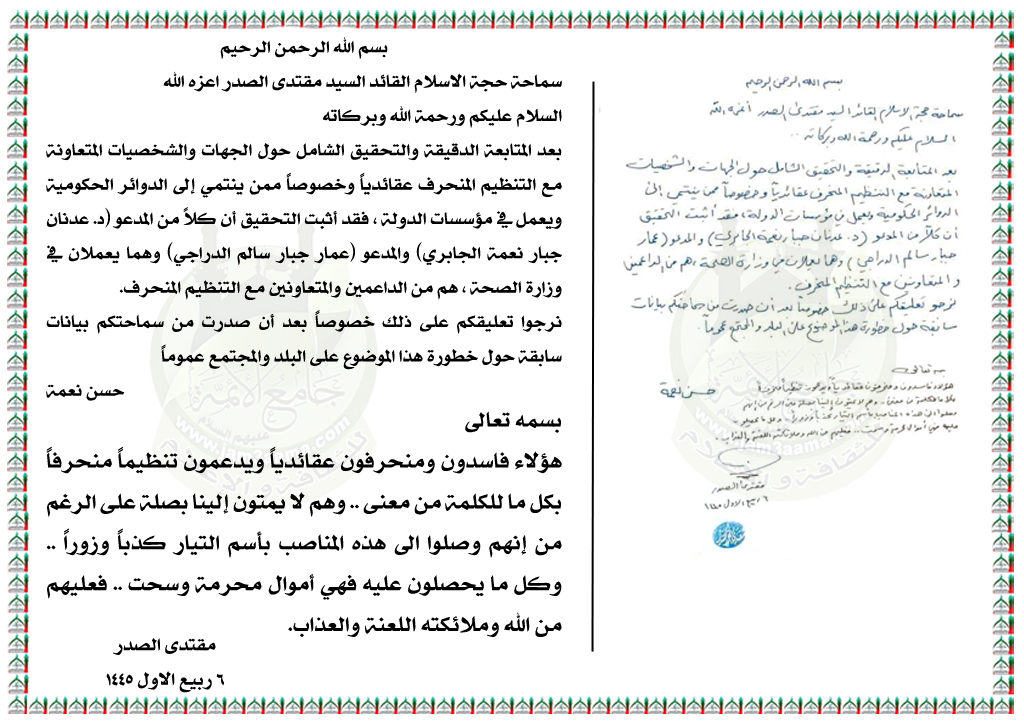 بسم الله الرحمن الرحيم
سماحة حجة الاسلام القائد السيد مقتدى الصدر اعزه الله
السلام عليكم ورحمة الله وبركاته
بعد المتابعة الدقيقة والتحقيق الشامل حول الجهات والشخصيات المتعاونة
مع التنظيم المنحرف عقائدياً وخصوصاً ممن ينتمي إلى الدوائر الحكومية
ويعمل في مؤسسات الدولة ، فقد أثبت التحقيق أن كلاً من المدعو (د. عدنان
جبار نعمة الجابري) والمدعو (عمار جبار سالم الدراجي) وهما يعملان في
وزارة الصحة ، هم من الداعمين والمتعاونين مع التنظيم المنحرف.
نرجوا تعليقكم على ذلك خصوصاً بعد أن صدرت من سماحتكم بيانات
سابقة حول خطورة هذا الموضوع على البلد والمجتمع عموماً
حسن نعمة
بسمه تعالى
هؤلاء فاسدون ومنحرفون عقائدياً ويدعمون تنظيماً منحرفاً
بكل ما للكلمة من معنى .. وهم لا يمتون إلينا بصلة على الرغم
من إنهم وصلوا الى هذه المناصب بأسم التيار كذباً وزوراً ..
وكل ما يحصلون عليه فهي أموال محرمة وسحت .. فعليهم
من الله وملائكته اللعنة والعذاب.
مقتدى الصدر
٦ ربيع الاول ١٤٤٥
بسم الله الرحمن الرحيم
سماحة حجة الاسلام القائد السيد مقتدى الصدر أعزه الله
السلام عليكم ورحمة الله وبركاته ..
بعد المتابعة الدقيقة والتحقيق الشامل حول الجهات والشخصيات
المتعاونة مع التنظيم المنحرف عقائدياً وخصوصاً ممن ينتمي إلى
الدوائر الحكومية ويعمل في مؤسسات الدولة، فقد أثبت التحقيق
أن كلاً من المدعو (د. عدنان جبار نعمة الجابري) والمدعو (عمار
جبار سالم الدراجي) وهما يعملان في وزارة الصحة، هم من الداعمين
والمتعاونين مع التنظيم المنحرف.
نرجو تعليقكم على ذلك خصوصاً بعد أن صدرت من سماحتكم بيانات
سابقة حول خطورة هذا الموضوع على البلد والمجتمع عموماً.
حسن نعمة
بسمه تعالى
هؤلاء فاسدون ومنحرفون عقائدياً ويدعمون تنظيماً منحرفاً
بكل ما للكلمة من معنى .. وهم لا يمتون إلينا بصلة على الرغم من إنهم
وصلوا الى هذه المناصب بأسم التيار كذباً وزوراً .. وكل ما يحصلون
عليه فهي أموال محرمة وسحت .. فعليهم من الله وملائكته اللعنة والعذاب.
مقتدى الصدر
٦ ربيع الاول ١٤٤٥
جامع الأئمة
عليهم السلام
www.jam3aama.com
للثقافة والإعلام